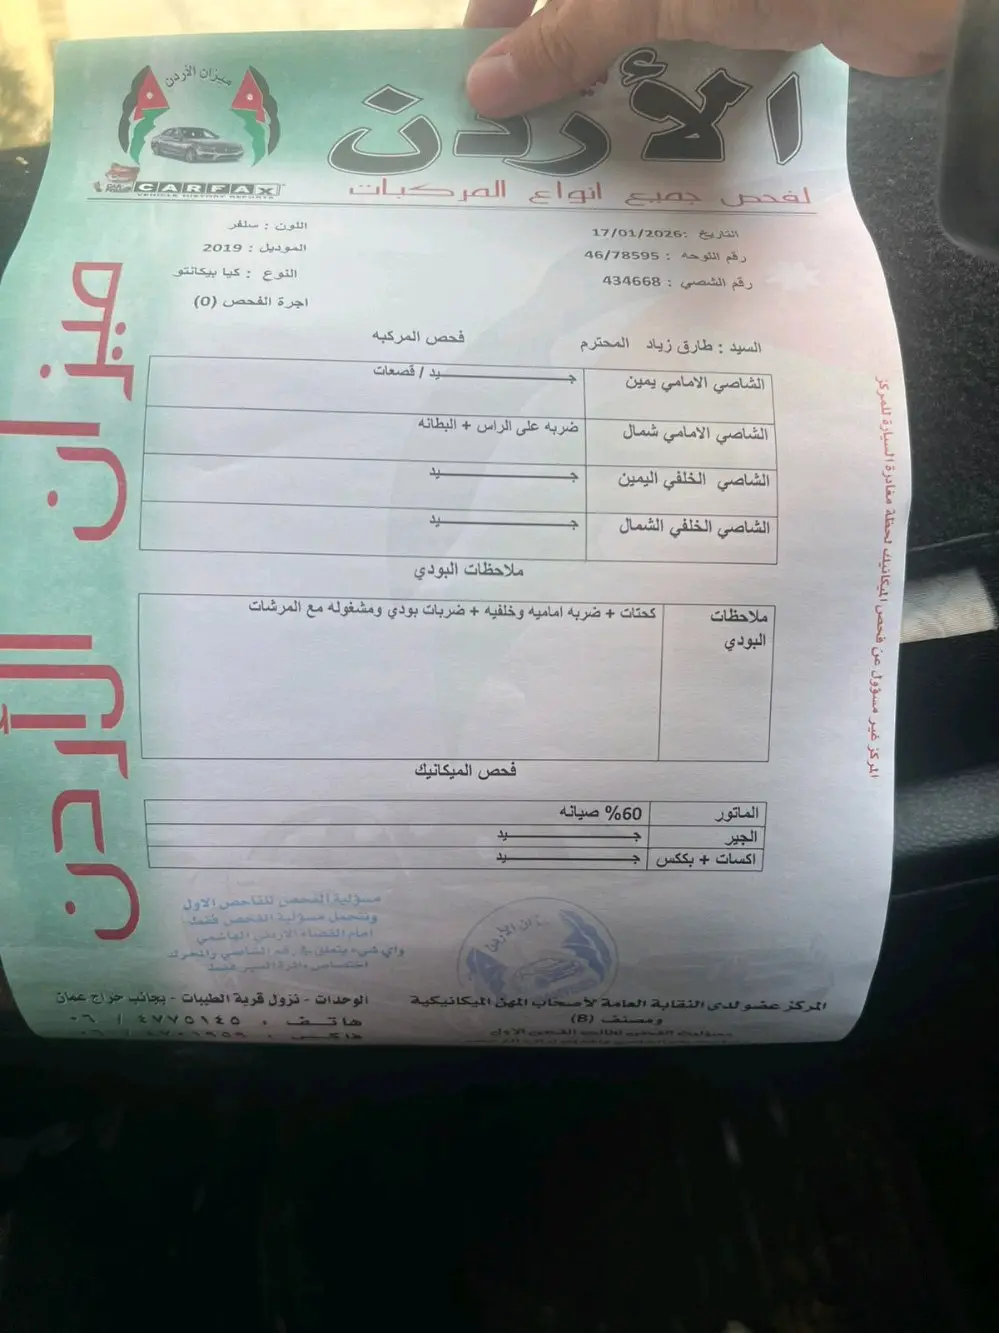 ميزان الأردن
الأردن
CARFAX
VEHICLE HISTORY REPORTS
لفحص جميع انواع المركبات
التاريخ :17/01/2026
اللون : سلفر
رقم اللوحه : 46/78595
الموديل : 2019
رقم الشصي : 434668
النوع : كيا بيكانتو
اجرة الفحص (0)
السيد : طارق زياد المحترم
فحص المركبه
الشاصي الامامي يمين
جـــــــيد / قصعات
الشاصي الامامي شمال
ضربه على الراس + البطانه
الشاصي الخلفي اليمين
جـــــــيد
الشاصي الخلفي الشمال
جـــــــيد
ملاحظات البودي
ملاحظات البودي
كحتات + ضربه اماميه وخلفيه + ضربات بودي ومشغوله مع المرشات
فحص الميكانيك
الماتور
60% صيانه
الجير
جـــــــيد
اكسات + بككس
جـــــــيد
ميزان الأردن
المركز غير مسؤول عن فحص الميكانيك لحظة مغادرة السيارة للمركز
مسؤلية الفحص للفاحص الاول
ونتحمل مسؤلية الفحص فقط
امام القضاء الاردني الهاشمي
واي شيء يتعلق في رقم الشاصي والمحرك
اختصاص دائرة السير فقط
المركز عضو لدى النقابة العامة لأصحاب المهن الميكانيكية
ومصنف (B)
الوحدات - نزول قرية الطيبات - بجانب حراج عمان
هاتف : ٤٧٧٥١٤٥ / ٠٦